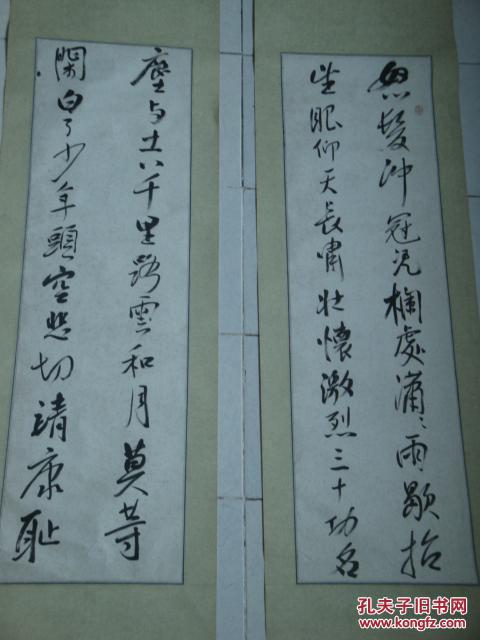 怒髮冲冠凭欄處瀟〻雨歇抬
望眼仰天長嘯壮懷激烈三十功名
塵与土八千里路雲和月莫等
閑白了少年頭空悲切靖康耻
孔夫子旧书网
www.kongfz.com